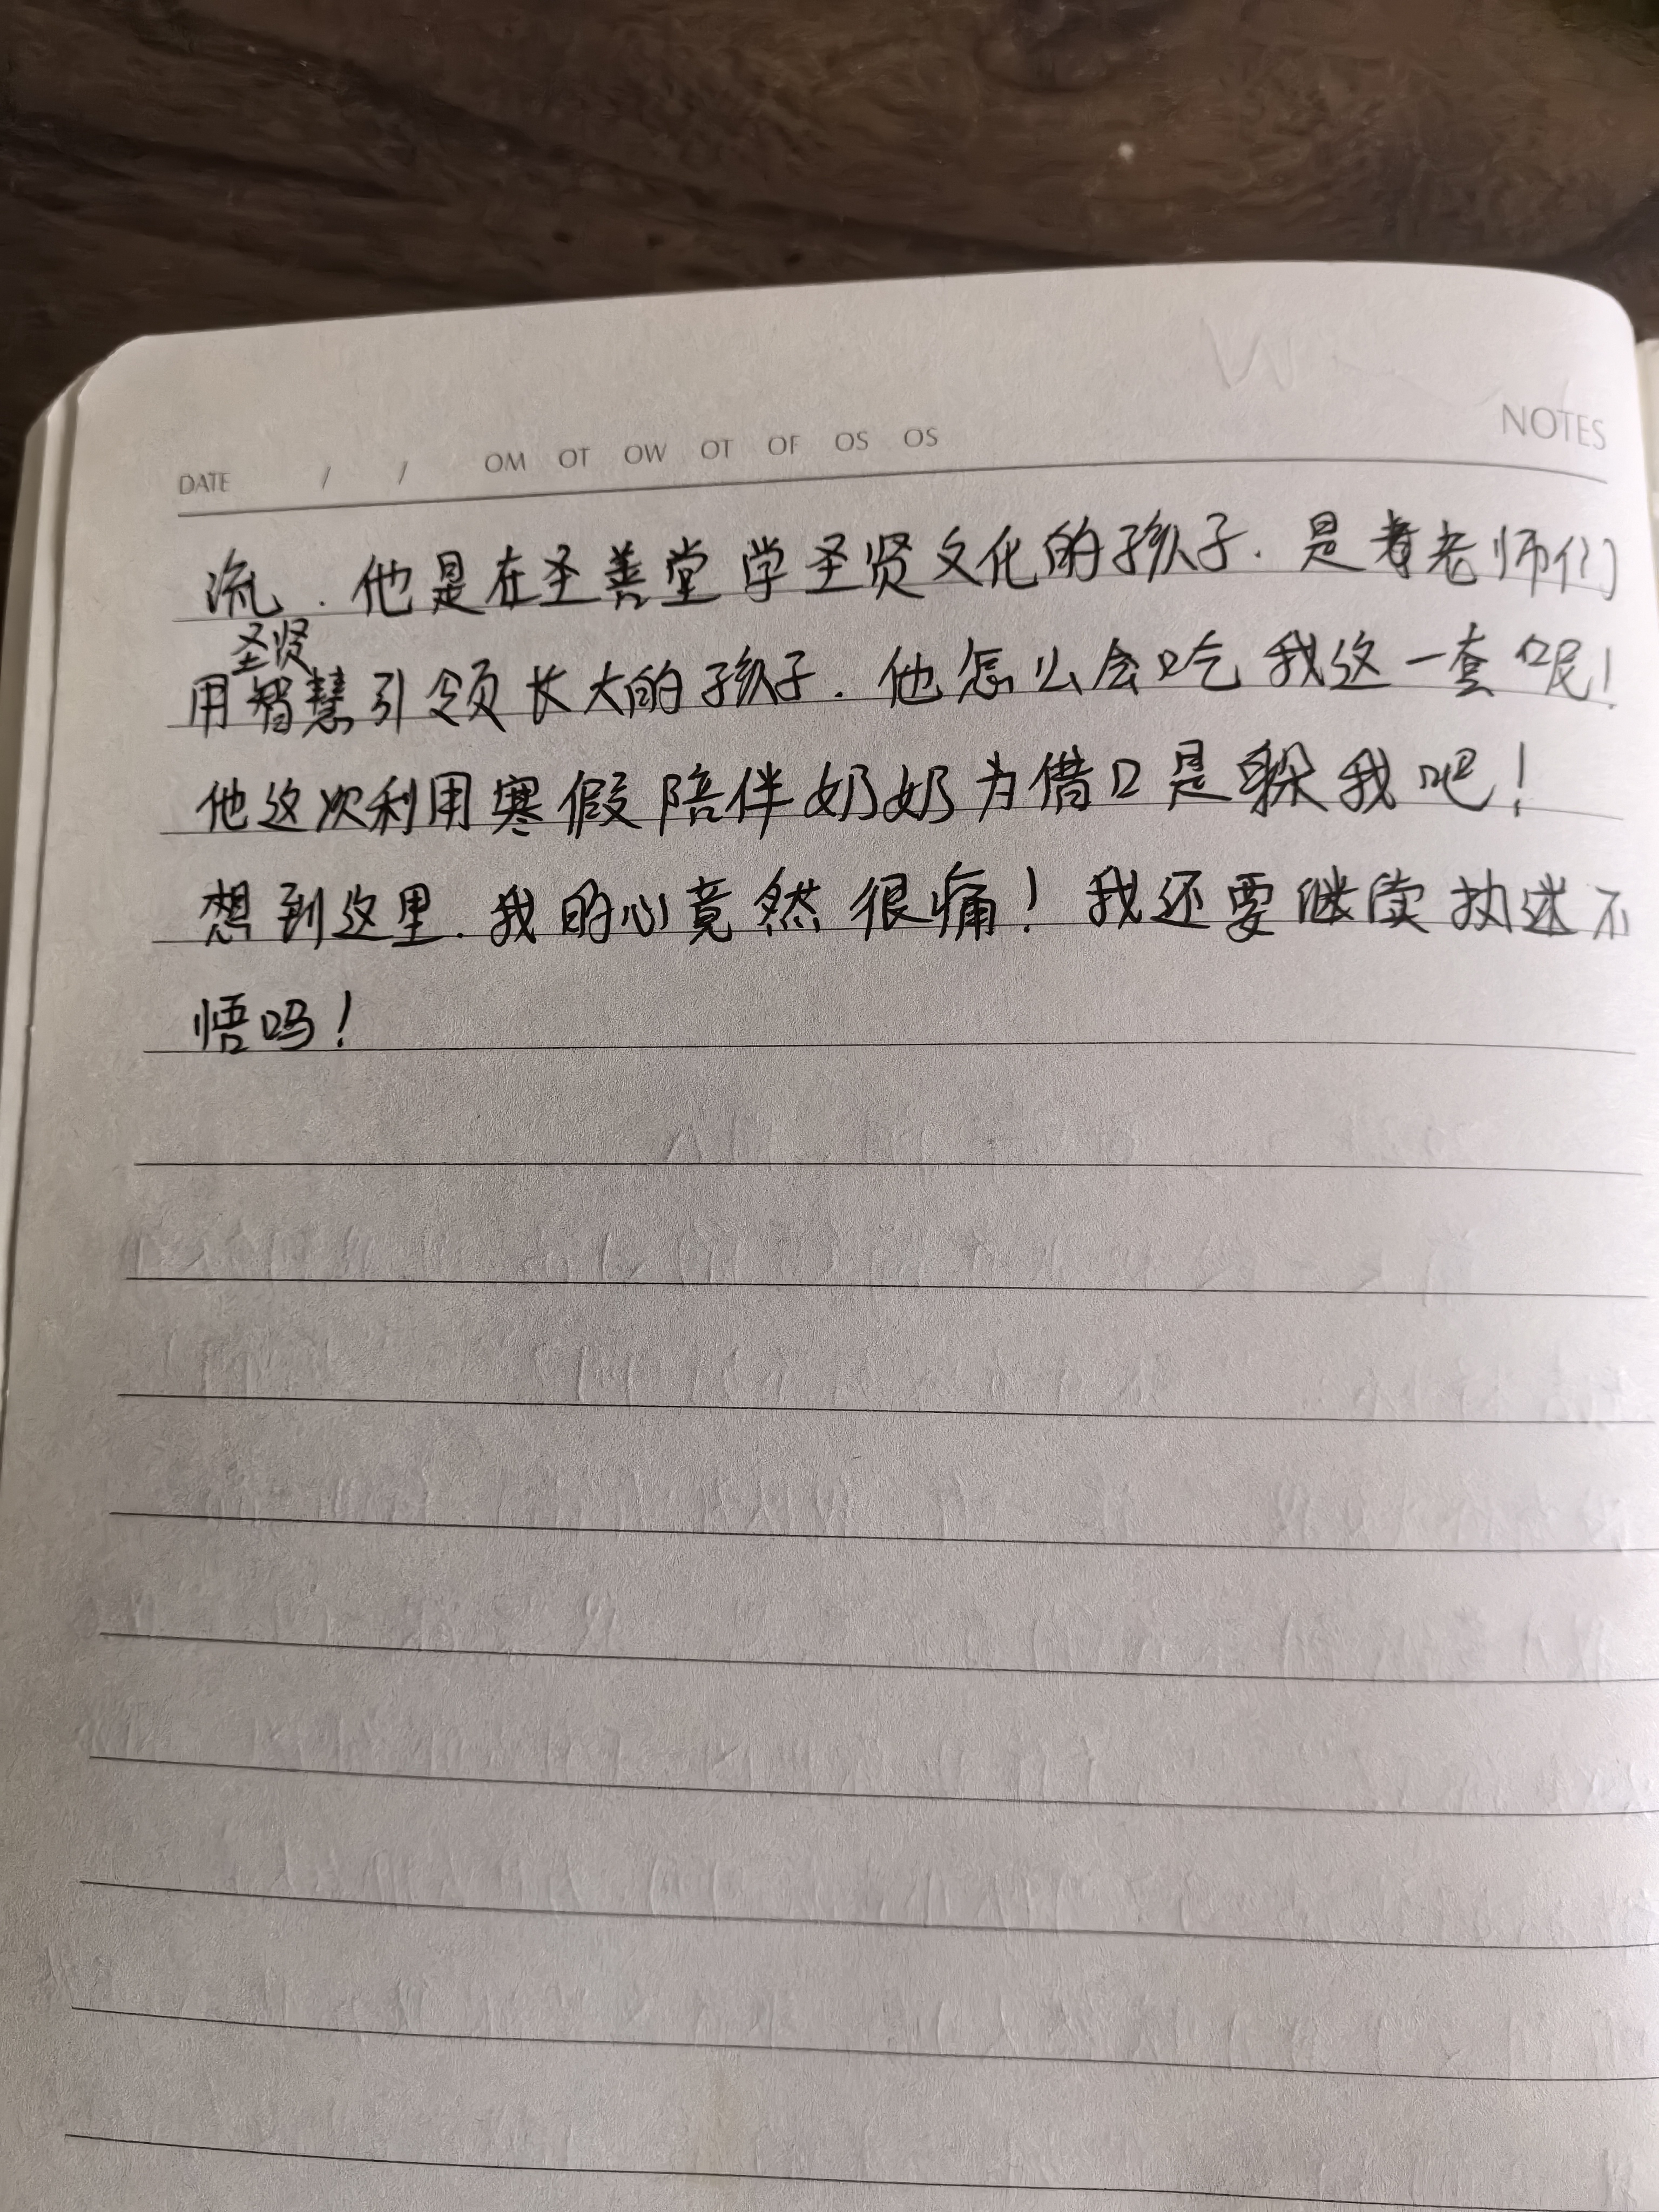 NOTES
DATE / / OM OT OW OT OF OS OS
流．他是在圣善堂学圣贤文化的孩子．是着老师们
圣贤
用智慧引领长大的孩子．他怎么会吃我这一套呢！
他这次利用寒假陪伴奶奶为借口是躲我吧！
想到这里．我的心竟然很痛！我还要继续执迷不
悟吗！